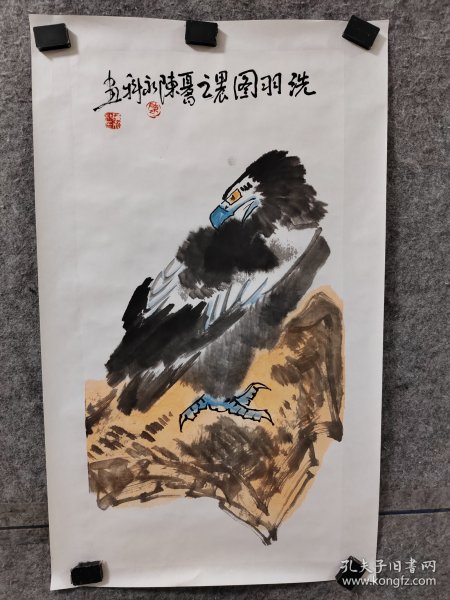 洗羽图之陳永科画
孔夫子旧书网
www.kongfz.com